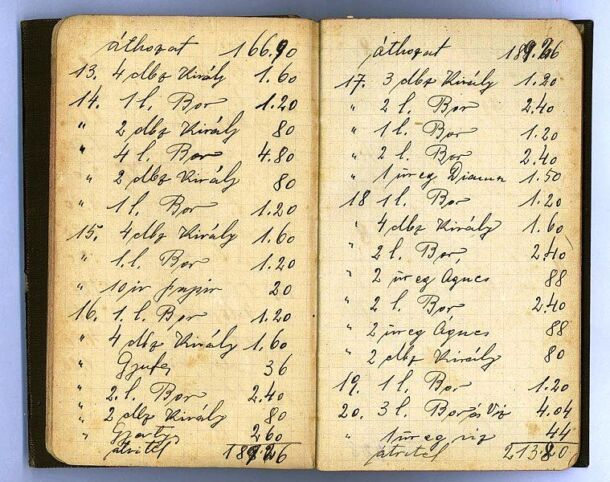 áthozat 166.90
13. 4 dbz Király 1.60
14. 1 l. Bor 1.20
" 2 dbz Király 80
" 4 l. Bor 4.80
" 2 dbz Király 80
" 1 l. Bor 1.20
15. 4 dbz Király 1.60
" 1 l. Bor 1.20
" 10 ív papir 20
16. 1 l. Bor 1.20
" 4 dbz Király 1.60
" Gyufa 36
" 2 l. Bor 2.40
" 2 dbz Király 80
" 2 60
átvitel
áthozat
17. 3 dbz Király 1.20
" 2 l. Bor 2.40
" 1 l. Bor 1.20
" 2 l. Bor 2.40
" 1 üveg Diana 1.50
18 1 l. Bor 1.20
" 4 dbz Király 1.60
" 2 l. Bor, 2.40
" 2 üveg Agnes 88
" 2 l. Bor 2.40
" 2 üveg Agnes 88
" 2 dbz Király 80
19. 1 l. Bor 1.20
20. 3 l. Bor és Viz 4.04
" 1 üveg viz 44
átvitel 213.80